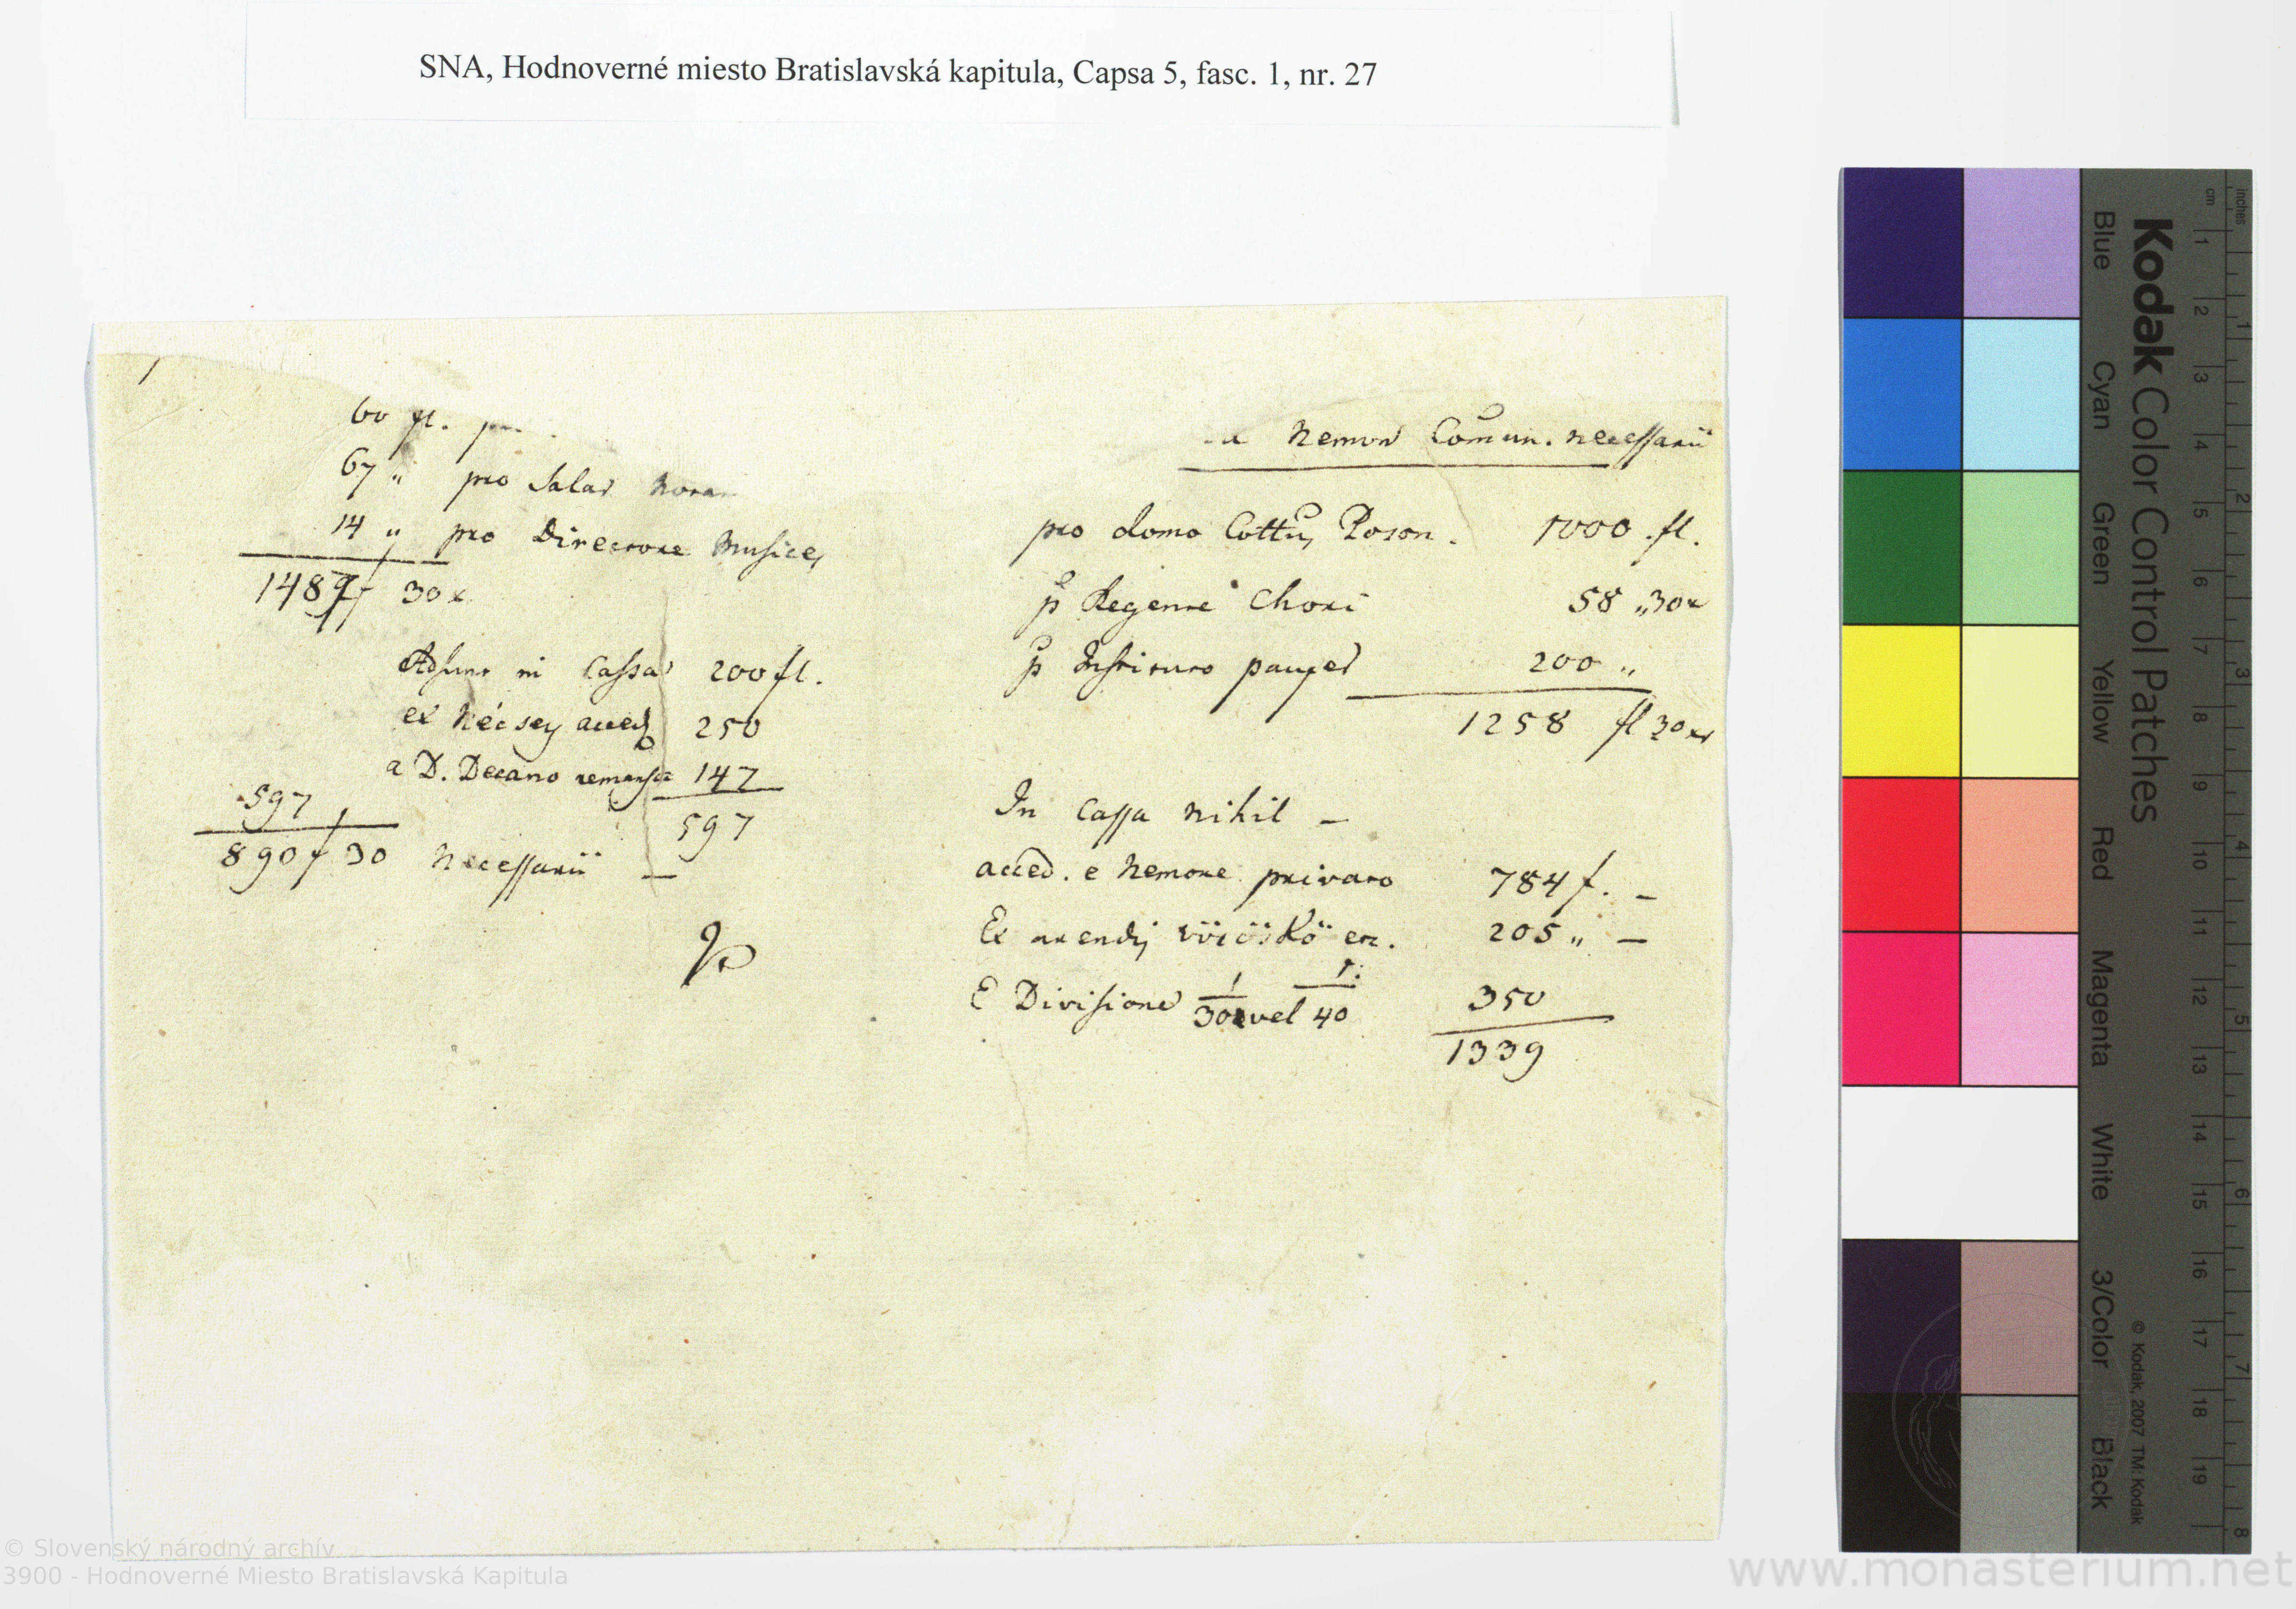 SNA, Hodnoverné miesto Bratislavská kapitula, Capsa 5, fasc. 1, nr. 27
60 fl.
67 " pro Salar
14 " pro Directore Musices
1487f 30x
Adsunt in Cassa 200 fl.
ex Nécsey acced 250
a D. Decano remansa 147
597
597
890f 30 necessarii —
Nemor Comun. necessarii
pro domo Cottus Poson. 1000 fl.
p Regente Chori 58 " 30x
p Instituto pauper 200 "
1258 fl 30xr
In Cassa nihil —
acced. e Nemore privato 784 f. —
Ex arendis vöröskö etc. 205 " —
E Divisione 1/30 vel 1/40 350
1339
Kodak Color Control Patches
Blue Cyan Green Yellow Red Magenta White 3/Color Black
© Kodak, 2007 TM: Kodak
inches 1 2 3 4 5 6 7 8
cm 1 2 3 4 5 6 7 8 9 10 11 12 13 14 15 16 17 18 19
© Slovenský národný archív
3900 - Hodnoverné Miesto Bratislavská Kapitula
www.monasterium.net